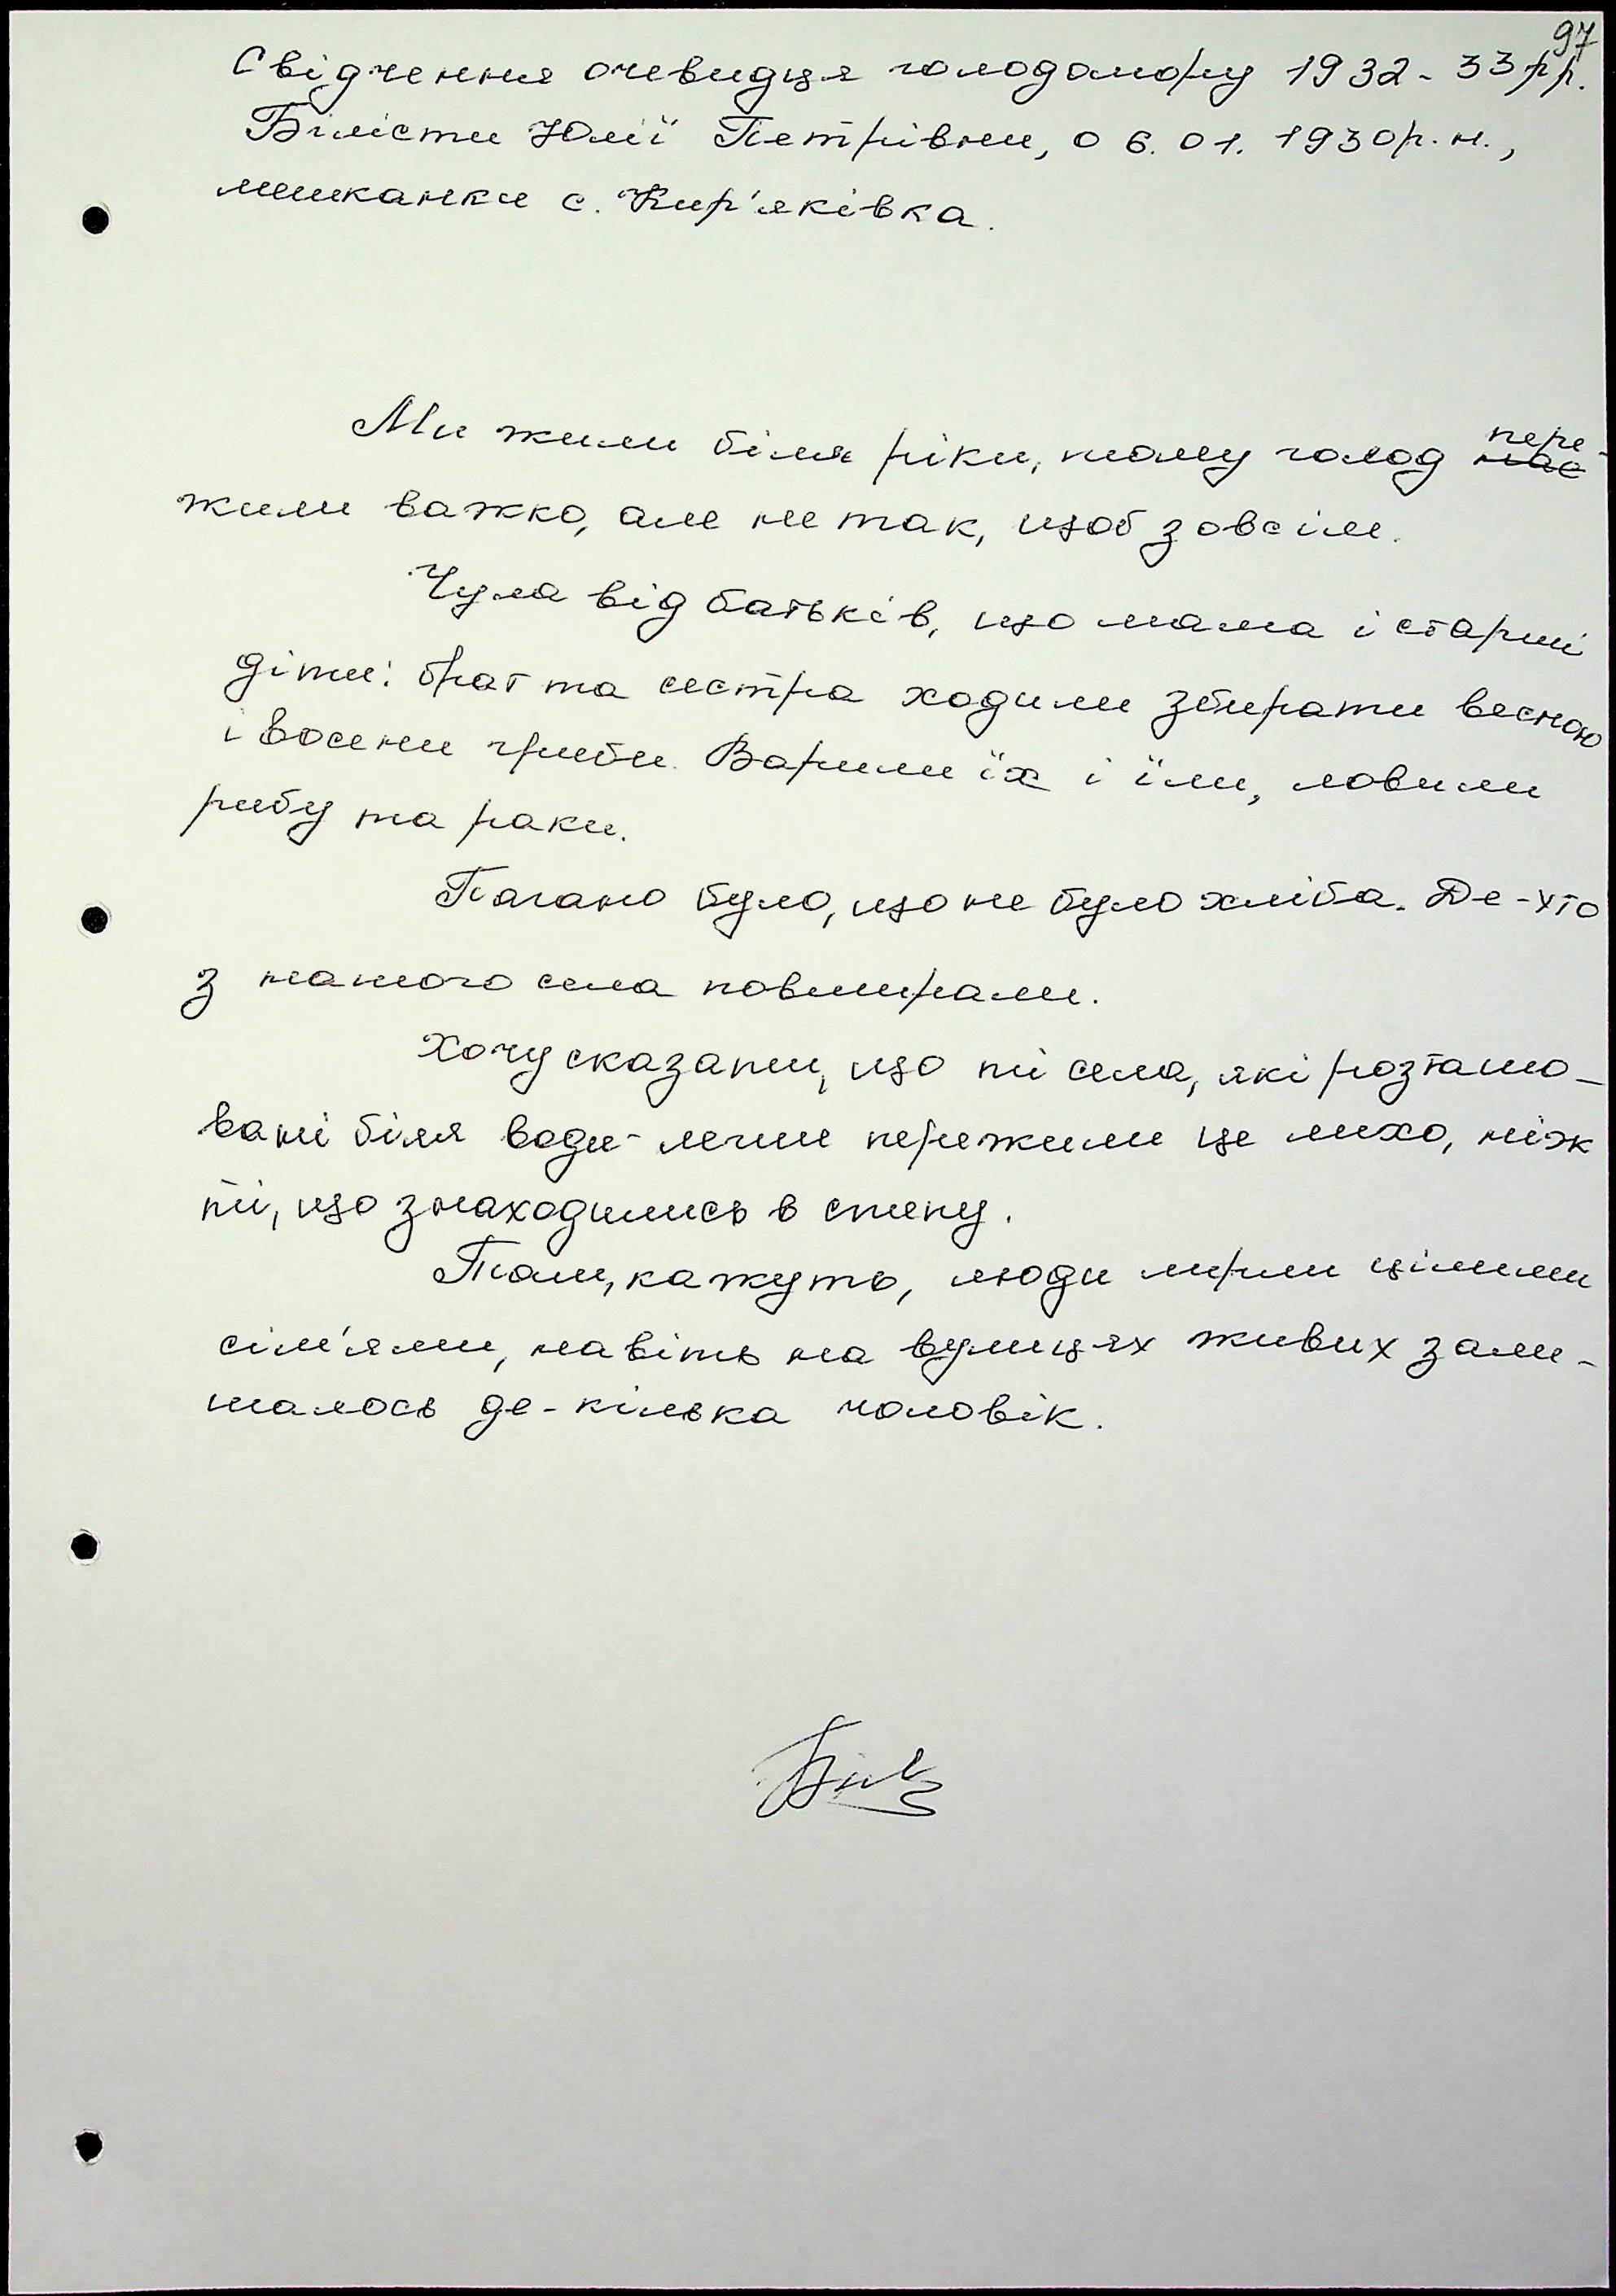 97
Свідчення очевидця голодомору 1932-33 рр.
Білісти Юлії Петрівни, 06.01.1930р.н.,
мешканки с. Кир'яківка.
Ми жили біля ріки, тому голод пере-
жили важко, але не так, щоб зовсім.
Чула від батьків, що мама і старші
діти: брат та сестра ходили збирати весною
і восени гриби. Варили їх і їли, ловили
рибу та раки.
Погано було, що не було хліба. Де-хто
з нашого села повмирали.
Хочу сказати, що ті села, які розташо-
вані біля води - легше пережили це лихо, ніж
ті, що знаходились в степу.
Там, кажуть, люди мерли цілими
сім'ями, навіть на вулицях живих зали-
шалось де-кілька чоловік.